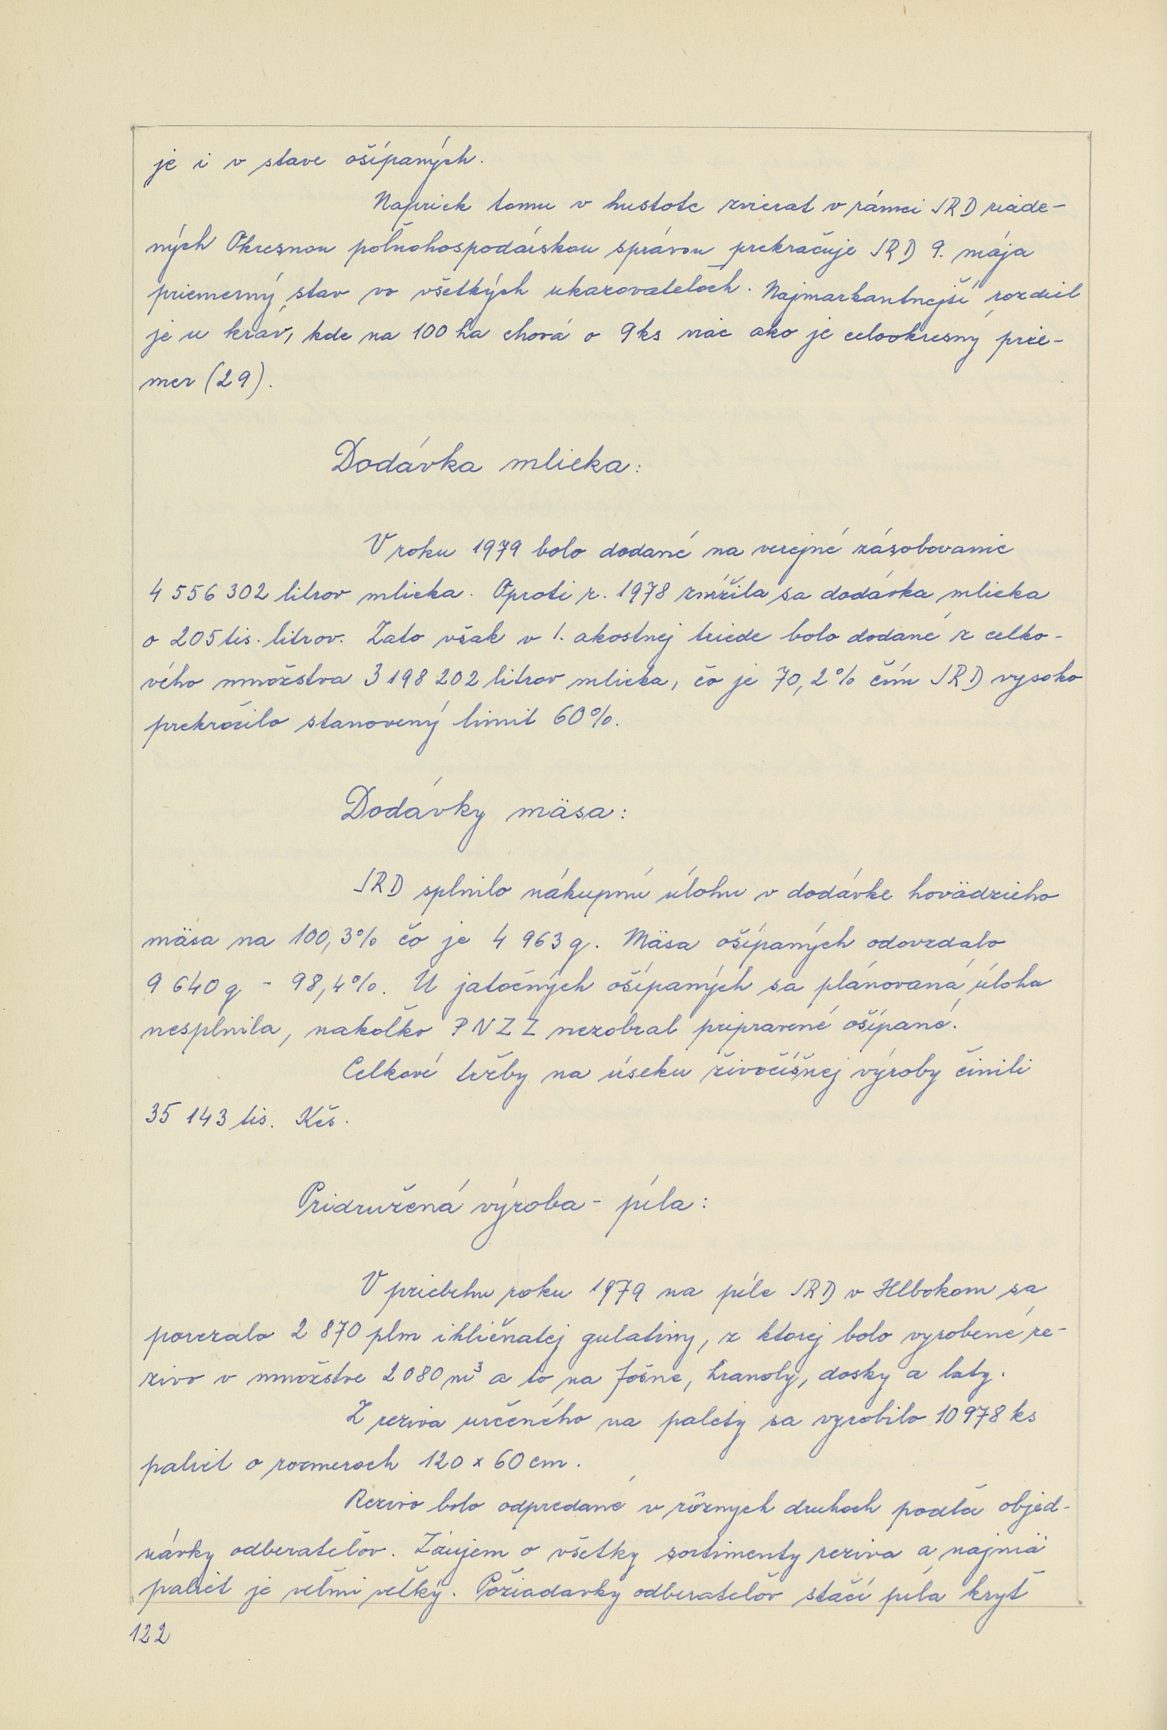 je i v stave ošípaných.
Napriek tomu v hustote zvierat v rámci JRD riade-
ných Okresnou poľnohospodárskou správou prekračuje JRD 9. mája
priemerný stav vo všetkých ukazovateľoch. Najmarkantnejší rozdiel
je u kráv, kde na 100 ha chová o 9 ks viac ako je celookresný prie-
mer (29).
Dodávka mlieka:
V roku 1979 bolo dodané na verejné zásobovanie
4 556 302 litrov mlieka. Oproti r. 1978 znížila sa dodávka mlieka
o 205 tis. litrov. Zato však v 1. akostnej triede bolo dodané z celko-
vého množstva 3 198 202 litrov mlieka, čo je 70,2% čím JRD vysoko
prekročilo stanovený limit 60%.
Dodávky mäsa:
JRD splnilo nákupnú úlohu v dodávke hovädzieho
mäsa na 100,3% čo je 4 963 q. Mäsa ošípaných odovzdalo
9 640 q - 98,4%. U jatočných ošípaných sa plánovaná úloha
nesplnila, nakoľko PNZZ nezobral pripravené ošípané.
Celkové tržby na úseku živočíšnej výroby činili
35 143 tis. Kčs.
Pridružená výroba - píla:
V priebehu roku 1979 na píle JRD v Hlbokom sa
porezalo 2 870 plm ihličnatej gulatiny, z ktorej bolo vyrobené re-
zivo v množstve 2 080 m³ a to na fošne, hranoly, dosky a laty.
Z reziva určeného na palety sa vyrobilo 10 978 ks
paliet o rozmeroch 120 x 60 cm.
Rezivo bolo odpredané v rôznych druhoch podľa objed-
návky odberateľov. Záujem o všetky sortimenty reziva a najmä
paliet je veľmi veľký. Požiadavky odberateľov stačí píla kryť
122